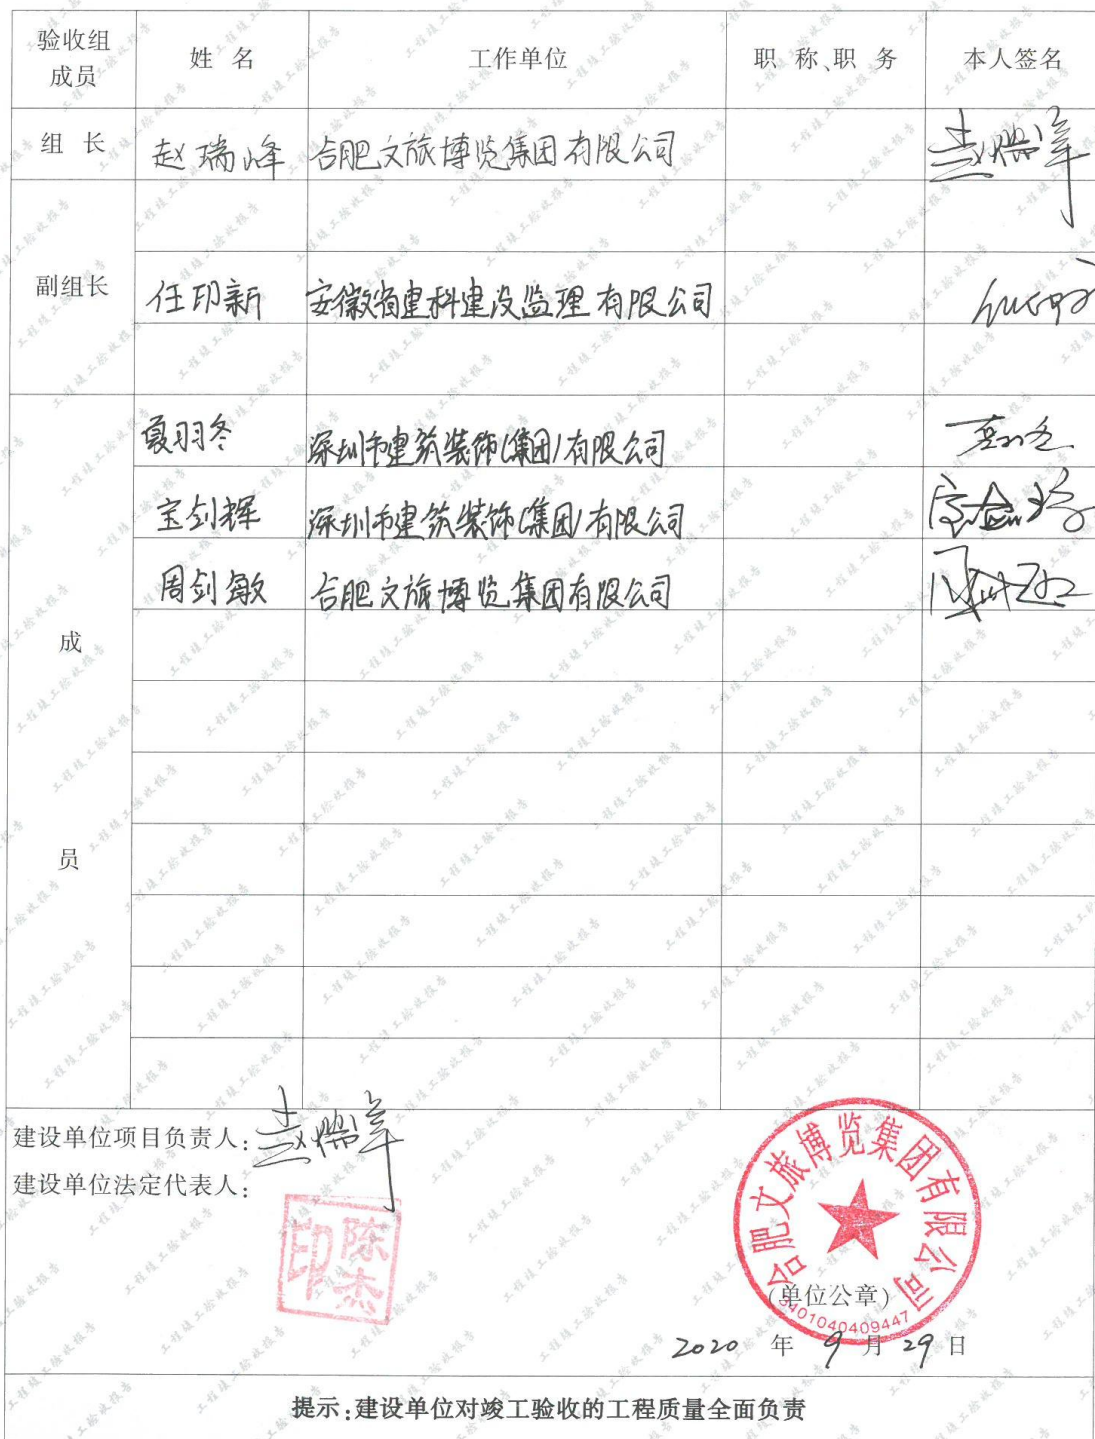 验收组成员 姓 名 工作单位 职 称、职 务 本人签名
组 长 赵瑞峰 合肥文旅博览集团有限公司 赵瑞峰
副组长 任印新 安徽省建科建设监理有限公司
成员
夏羽冬 深圳市建筑装饰(集团)有限公司
宝剑辉 深圳市建筑装饰(集团)有限公司
周剑敏 合肥文旅博览集团有限公司
建设单位项目负责人：赵瑞峰
建设单位法定代表人：
陈杰印
合肥文旅博览集团有限公司
(单位公章)
3401040409447
2020 年 9 月 29 日
提示：建设单位对竣工验收的工程质量全面负责
工程竣工验收报告